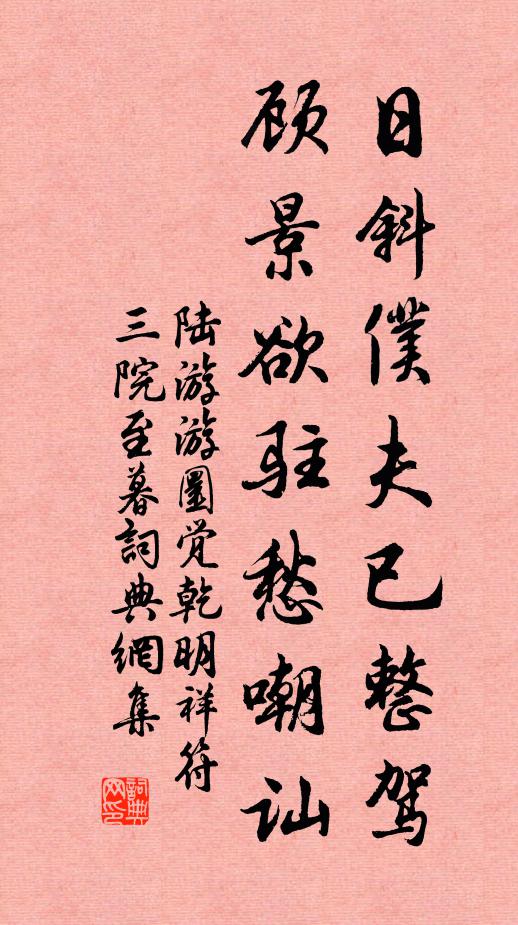 日斜僕夫已整驾
顾景欲驻愁嘲讪
陆游游圆觉乾明祥符
三院至暮詞典網集
詞典网印